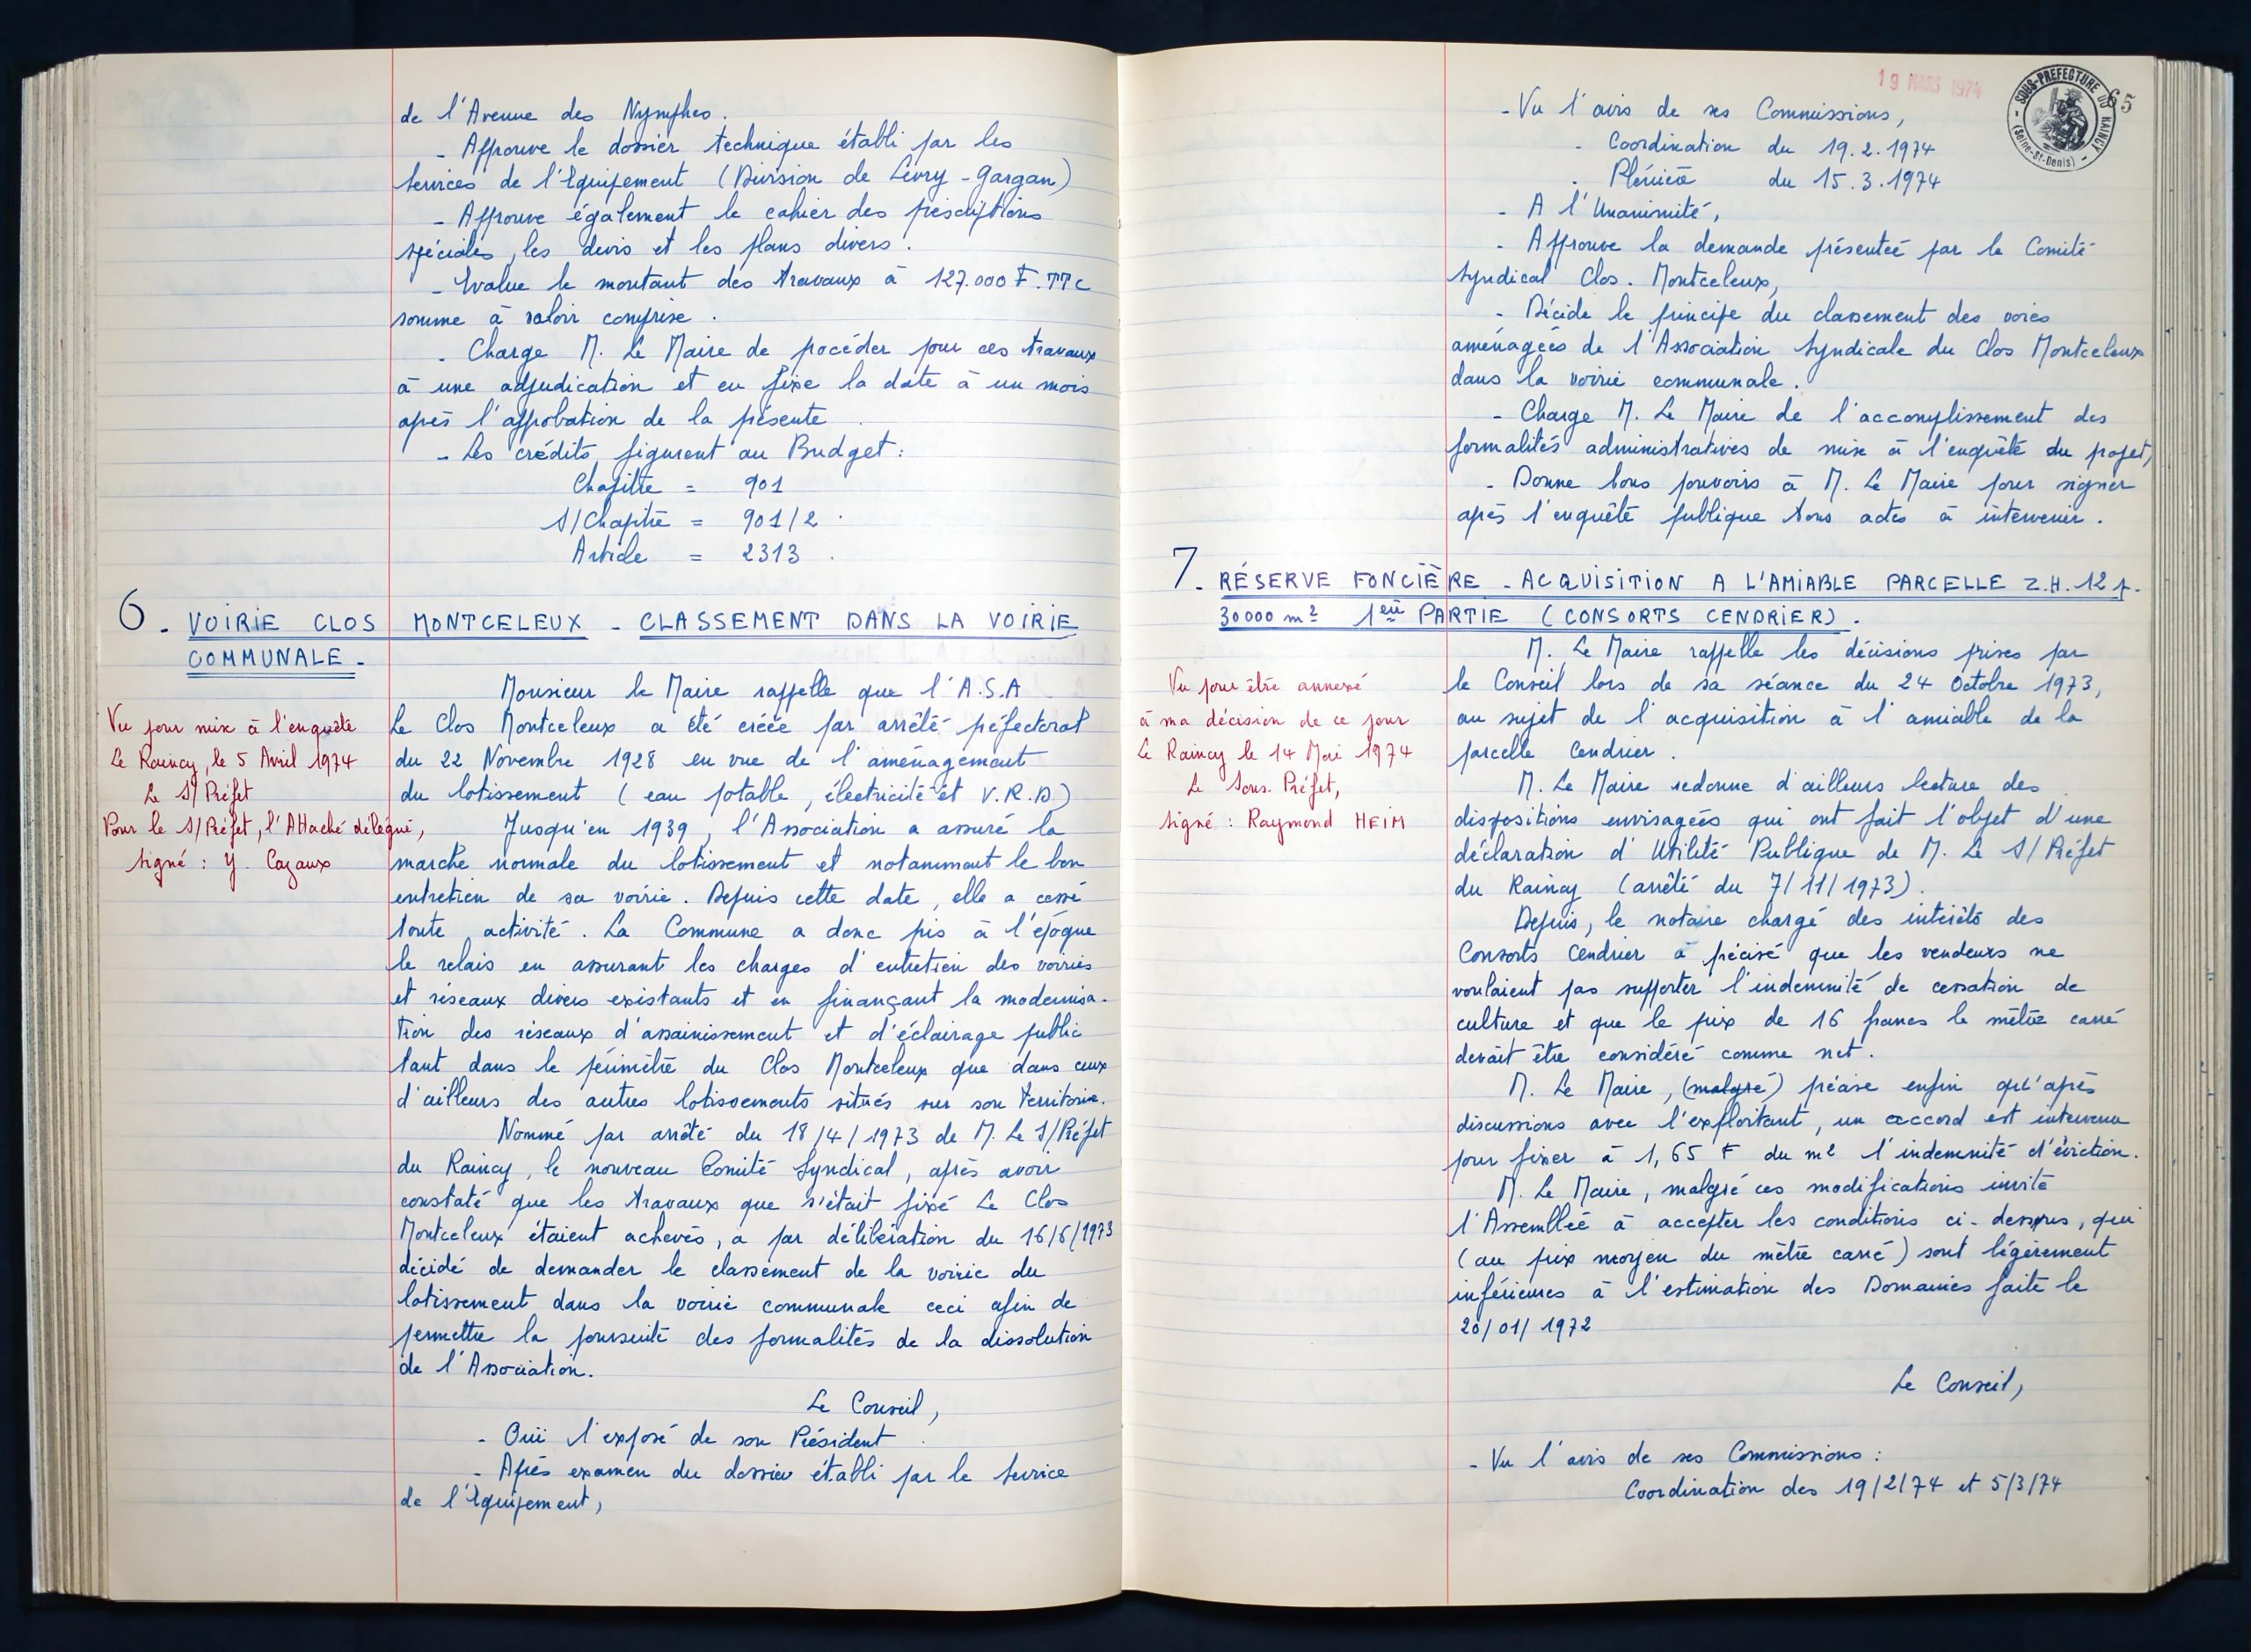 de l'Avenue des Nymphes.
- Approuve le dossier technique établi par les
Services de l'Equipement (Division de Livry-Gargan)
- Approuve également le cahier des prescriptions
spéciales, les devis et les plans divers.
- Evalue le montant des travaux à 127.000 F.TTC
somme à valoir comprise.
- Charge M. Le Maire de procéder pour ces travaux
à une adjudication et en fixe la date à un mois
après l'approbation de la présente
- Les crédits figurent au Budget:
Chapitre = 901
S/Chapitre = 901/2.
Article = 2313.
6. VOIRIE CLOS MONTCELEUX - CLASSEMENT DANS LA VOIRIE
COMMUNALE.
Monsieur le Maire rappelle que l'A.S.A
Le Clos Montceleux a été créée par arrêté préfectoral
du 22 Novembre 1928 en vue de l'aménagement
du lotissement (eau potable, électricité et V.R.D)
Jusqu'en 1939, l'Association a assuré la
marche normale du lotissement et notamment le bon
entretien de sa voirie. Depuis cette date, elle a cessé
toute activité. La Commune a donc pris à l'époque
le relais en assurant les charges d'entretien des voiries
et réseaux divers existants et en finançant la modernisa-
tion des réseaux d'assainissement et d'éclairage public
tant dans le périmètre du Clos Montceleux que dans ceux
d'ailleurs des autres lotissements situés sur son Territoire.
Nommé par arrêté du 18/4/1973 de M. Le S/Préfet
du Raincy, le nouveau Comité Syndical, après avoir
constaté que les travaux que s'était fixé Le Clos
Montceleux étaient achevés, a par délibération du 16/6/1973
décidé de demander le classement de la voirie du
lotissement dans la voirie communale ceci afin de
permettre la poursuite des formalités de la dissolution
de l'Association.
Le Conseil,
- Ouï l'exposé de son Président
- Après examen du dossier établi par le Service
de l'Equipement,
Vu pour mise à l'enquête
Le Raincy, le 5 Avril 1974
Le S/Préfet
Pour le S/Préfet, l'Attaché délégué,
Signé : Y. Cazaux
19 MARS 1974
SOUS-PREFECTURE DU RAINCY
- (Seine-St-Denis) -
65
- Vu l'avis de ses Commissions,
- Coordination du 19.2.1974
- Plénière du 15.3.1974
- A l'Unanimité,
- Approuve la demande présentée par le Comité
Syndical Clos. Montceleux,
- Décide le principe du classement des voies
aménagées de l'Association Syndicale du Clos Montceleux
dans la voirie communale.
- Charge M. Le Maire de l'accomplissement des
formalités administratives de mise à l'enquête du projet,
- Donne tous pouvoirs à M. Le Maire pour signer
après l'enquête publique tous actes à intervenir.
7. RÉSERVE FONCIÈRE - ACQUISITION A L'AMIABLE PARCELLE Z.H. 12 p.
30000 m² 1ère PARTIE (CONSORTS CENDRIER).
M. Le Maire rappelle les décisions prises par
le Conseil lors de sa séance du 24 Octobre 1973,
au sujet de l'acquisition à l'amiable de la
parcelle Cendrier.
M. Le Maire redonne d'ailleurs lecture des
dispositions envisagées qui ont fait l'objet d'une
déclaration d'Utilité Publique de M. Le S/Préfet
du Raincy (arrêté du 7/11/1973).
Depuis, le notaire chargé des intérêts des
Consorts Cendrier a précisé que les vendeurs ne
voulaient pas supporter l'indemnité de cessation de
culture et que le prix de 16 francs le mètre carré
devait être considéré comme net.
M. Le Maire, (malgré) précise enfin qu'après
discussions avec l'exploitant, un accord est intervenu
pour fixer à 1,65 F du m² l'indemnité d'éviction.
M. Le Maire, malgré ces modifications invite
l'Assemblée à accepter les conditions ci-dessus, qui
(au prix moyen du mètre carré) sont légèrement
inférieures à l'estimation des Domaines faite le
20/01/1972
Le Conseil,
- Vu l'avis de ses Commissions :
Coordination des 19/2/74 et 5/3/74
Vu pour être annexé
à ma décision de ce jour
Le Raincy le 14 Mai 1974
Le Sous-Préfet,
Signé : Raymond HEIM